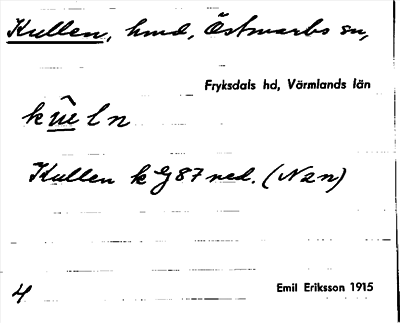 Kullen, hmd, Östmarks sn,
Fryksdals hd, Värmlands län
Kullen k G 87 ned. (Nan)
4
Emil Eriksson 1915